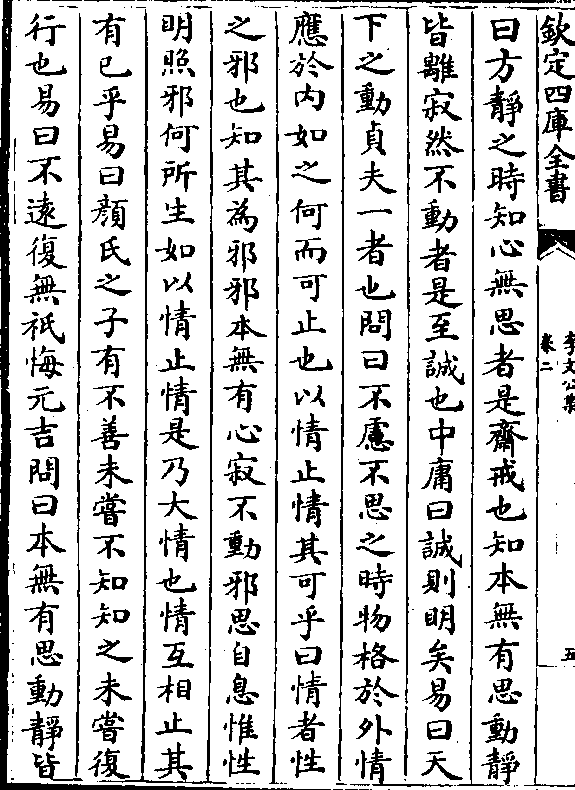 欽定四庫全書
李文公集
卷二
五
曰方靜之時知心無思者是齋戒也知本無有思動靜
皆離寂然不動者是至誠也中庸曰誠則明矣易曰天
下之動貞夫一者也問曰不慮不思之時物格於外情
應於内如之何而可止也以情止情其可乎曰情者性
之邪也知其為邪邪本無有心寂不動邪思自息惟性
明照邪何所生如以情止情是乃大情也情互相止其
有已乎易曰顔氏之子有不善未嘗不知知之未嘗復
行也易曰不遠復無祇悔元吉問曰本無有思動靜皆